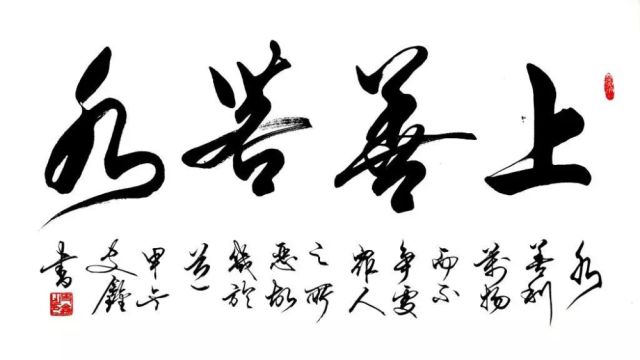 上善若水
水
善利
萬物
而不
争處
眾人
之所
惡故
幾於
道
甲午
書